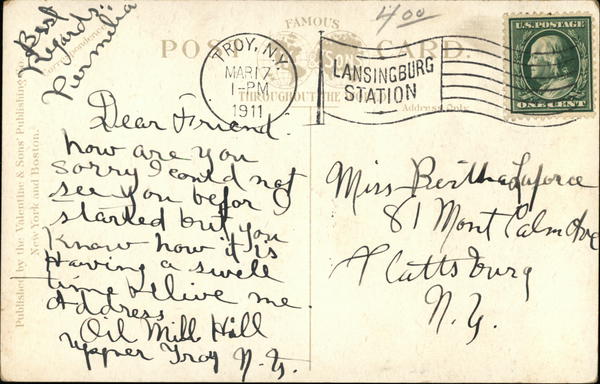 Best
Regards.
Permilia
Correspondence
Published by the Valentine & Sons' Publishing Co.
New York and Boston.
FAMOUS
POST CARD.
SONS
THROUGHOUT THE
Address Only.
4 00
TROY, N.Y.
MAR 17
1-PM
1911
LANSINGBURG
STATION
U.S. POSTAGE
ONE CENT
Dear Friend.
how are you
sorry I could not
see you befor I
started but you
know how it is
Having a swell
time live me.
Address
Oil Mill Hill
uppner Troy N.Y.
Miss Bertha Laforce
81 Mont Calm Ave
Plattsburg
N.Y.